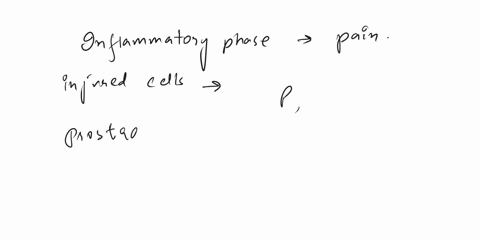 Inflammatory phase → pain.
injured cells → P,
prostag